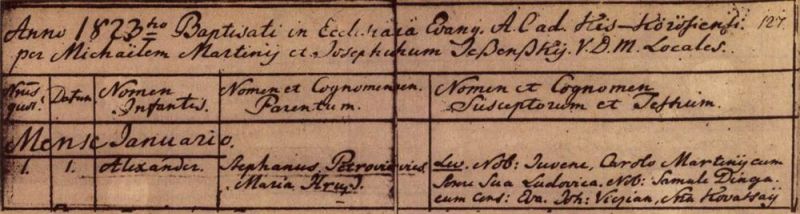 Anno 1823tio Baptisati in Ecclesia Evang. A. C. ad Kis-Kőrösiensi. 127.
per Michaëlem Martinij et Josephum Jeszenszkij. V. D. M. Locales.
Datum Nomen Infantis. Nomen et Cognomen Parentum. Nomen et Cognomen Susceptorum et Testium.
Mense Januario.
1. 1. Alexander. Stephanus Petrovics Lev. Nob: Juvene, Carolo Martinij cum
Maria Hruz. Sua Ludovica. Nob: Samule Dinga
cum Eva. Joh: Viczian, Kovatsaÿ